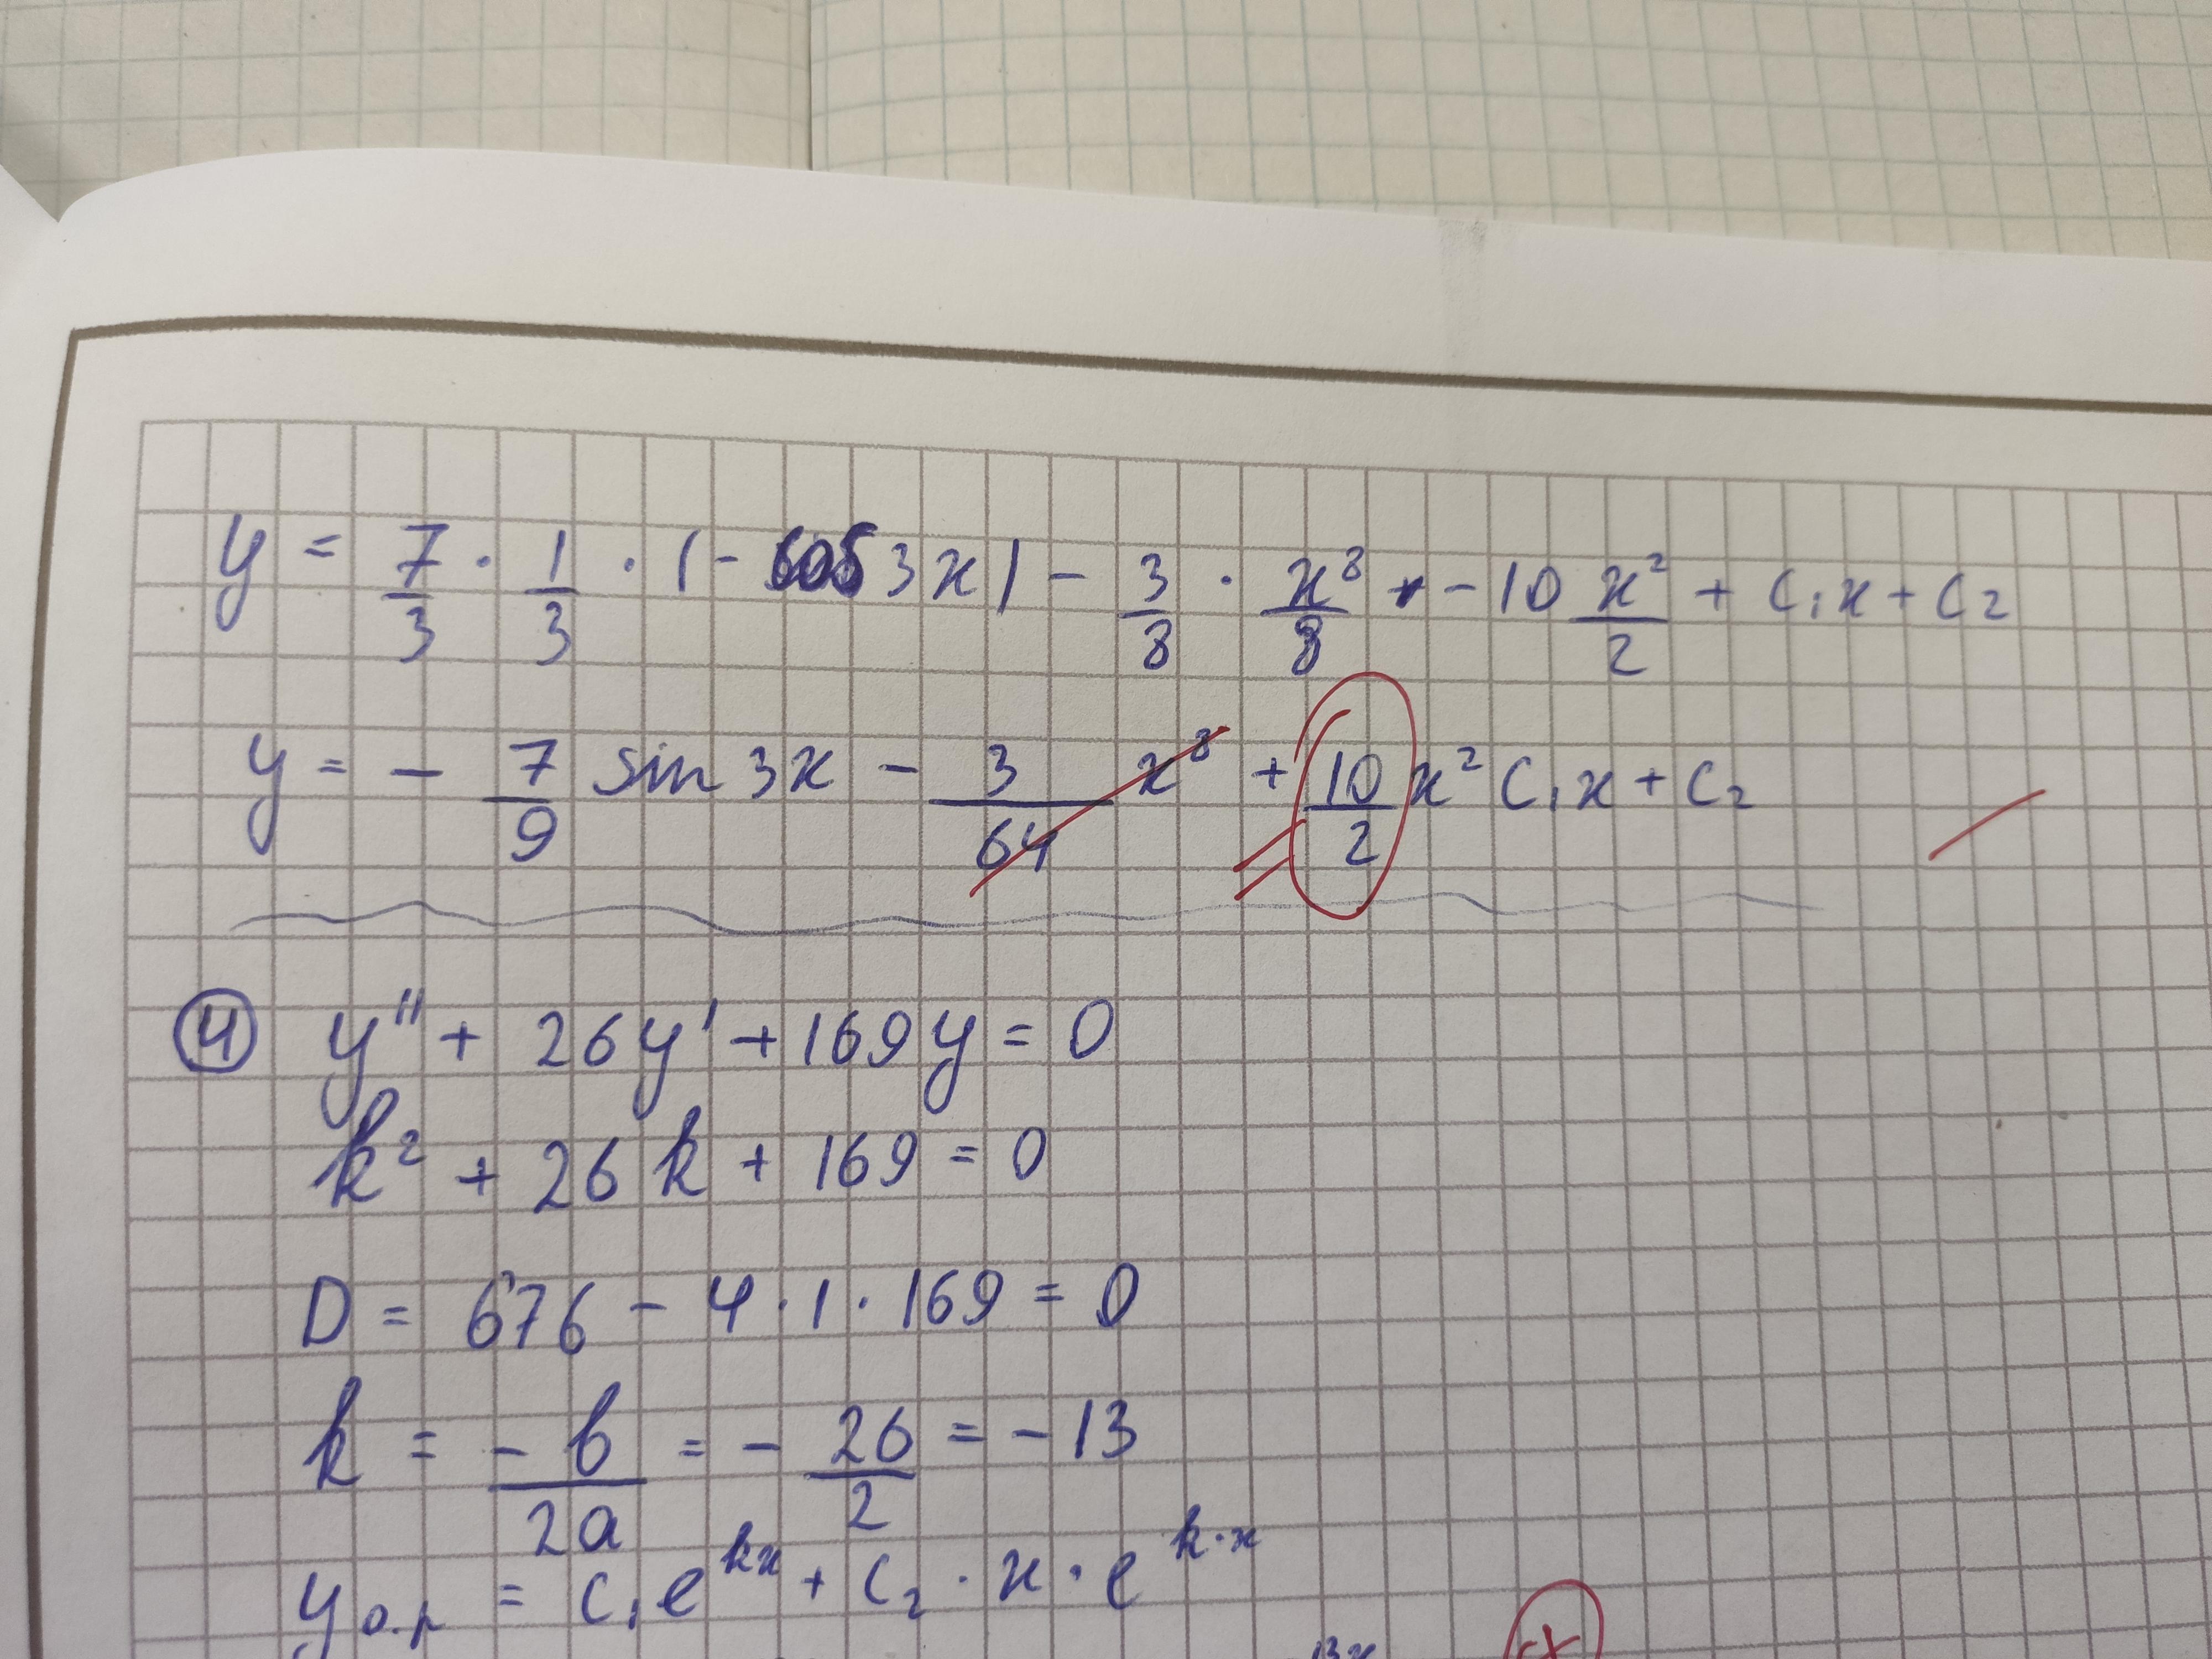 y = 7/3 · 1/3 · (- cos 3x) - 3/8 · x⁸/8 - 10 x²/2 + C₁x + C₂
y = - 7/9 sin 3x - 3/64 x⁸ + 10/2 x² C₁x + C₂
④ y'' + 26y' + 169y = 0
k² + 26k + 169 = 0
D = 676 - 4 · 1 · 169 = 0
k = -b/2a = - 26/2 = -13
yо.р = C₁e^kx + C₂ · x · e^k·x
13x +